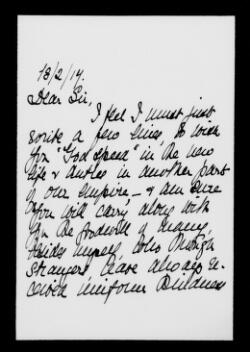 18/2/14.
Dear Sir,
I feel I must just
write a few lines, to wish
you "God speed" in the new
life & duties in another part
of our empire - & am sure
you will carry along with
you the goodwill of many,
besides myself, who though
strangers, have always re-
ceived uniform kindness